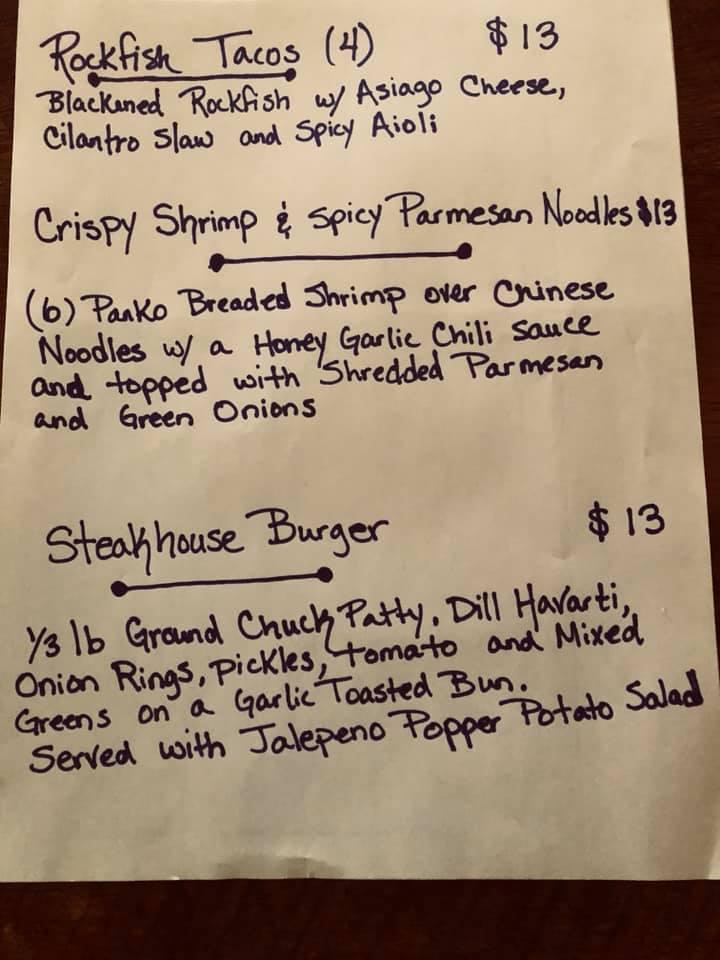 Rockfish Tacos (4) $13
Blackened Rockfish w/ Asiago Cheese,
Cilantro Slaw and Spicy Aioli
Crispy Shrimp & Spicy Parmesan Noodles $13
(6) Panko Breaded Shrimp over Chinese
Noodles w/ a Honey Garlic Chili Sauce
and topped with Shredded Parmesan
and Green Onions
Steakhouse Burger $13
1/3 lb Ground Chuck Patty, Dill Havarti,
Onion Rings, Pickles, Tomato and Mixed
Greens on a Garlic Toasted Bun.
Served with Jalepeno Popper Potato Salad